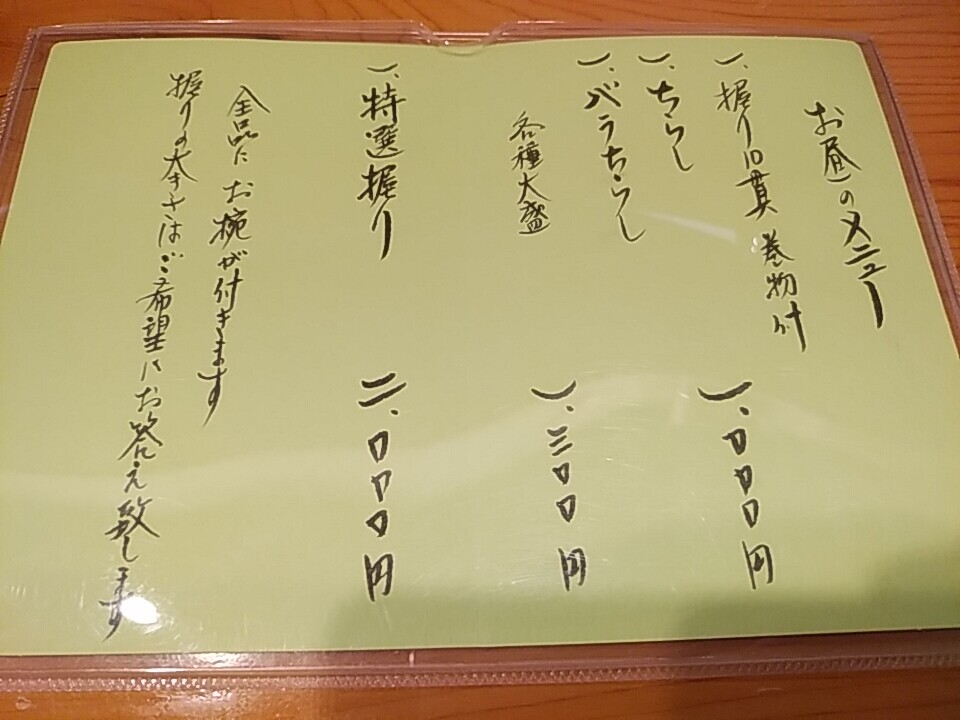 お昼のメニュー
一、握り10貫 巻物付
一、ちらし
一、バラちらし
一、000円
各種大盛
一、三00円
一、特選握り
二、000円
全品にお椀が付きます
握りの大きさはご希望にお答え致します